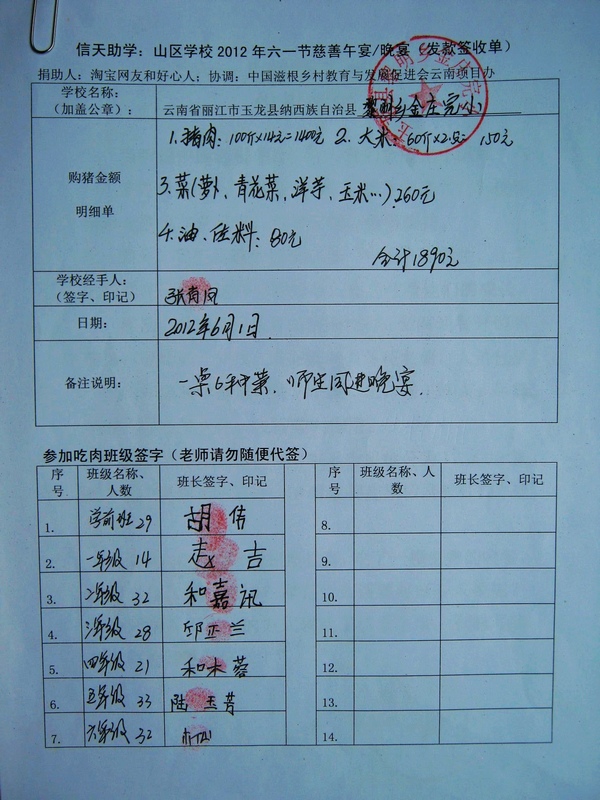 信天助学：山区学校2012年六一节慈善午宴/晚宴（发款签收单）
捐助人：淘宝网友和好心人；协调：中国滋根乡村教育与发展促进会云南项目办
学校名称：
（加盖公章）：
云南省丽江市玉龙县纳西族自治县 黎明乡金庄完小
购猪金额
明细单
1.猪肉：100斤×14元=1400元 2.大米：60斤×2.5= 150元
3.菜(萝卜、青花菜、洋芋、玉米…)260元
4.油、佐料：80元
合计1890元
学校经手人：
（签字、印记）
日期：
2012年6月1日
备注说明：
一桌6种菜，师生同进晚宴.
参加吃肉班级签字（老师请勿随便代签）
序号 班级名称、人数 班长签字、印记 序号 班级名称、人数 班长签字、印记
1. 学前班 29 胡倩 8.
2. 一年级 14 赵吉 9.
3. 二年级 32 和嘉讯 10.
4. 三年级 28 邱正兰 11.
5. 四年级 21 和木蓉 12.
6. 五年级 33 陆玉芳 13.
7. 六年级 32 14.